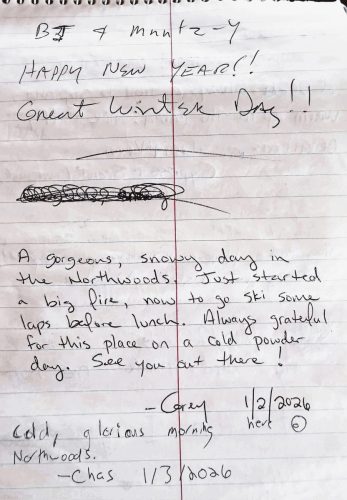 BJ & Mnntz-y
HAPPY NEW YEAR!!
Great Winter Day!!
A gorgeous, snowy day in
the Northwoods. Just started
a big fire, now to go ski some
laps before lunch. Always grateful
for this place on a cold powder
day. See you out there!
-Corey 1/2/2026
Cold, glorious morning here
Northwoods.
-Chas 1/3/2026